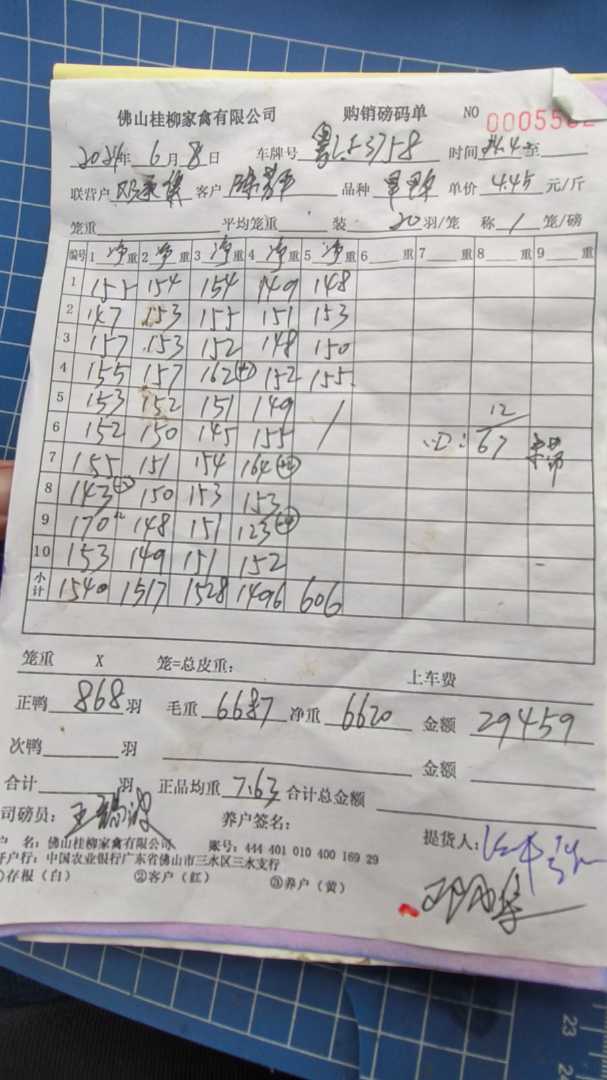 佛山桂柳家禽有限公司 购销磅码单 NO 00055
2024年 6月 8日 车牌号 粤 53758 时间 至
联营户 客户 品种 单价 4.45 元/斤
笼重 平均笼重 装 20 羽/笼 称 1 笼/磅
编号 1 净 重 2 净 重 3 净 重 4 净 重 5 净 重 6 重 7 重 8 重 9 重
1 155 154 154 149 148
2 147 153 155 151 153
3 157 153 152 148 150
4 155 157 162 152 155
5 153 152 151 149 / 12
6 152 150 145 155 67
7 155 151 154 164
8 143 150 153 153
9 170 148 151 123
10 153 149 151 152
小计 1540 1517 1528 1496 606
笼重 X 笼=总皮重: 上车费
正鸭 868 羽 毛重 6687 净重 6620 金额 29459
次鸭 羽 金额
合计 羽 正品均重 7.63 合计总金额
司磅员: 养户签名: 提货人:
户 名: 佛山桂柳家禽有限公司 账号: 444 401 010 400 169 29
开户行: 中国农业银行广东省佛山市三水区三水支行
①存根(白) ②客户(红) ③养户(黄)
23